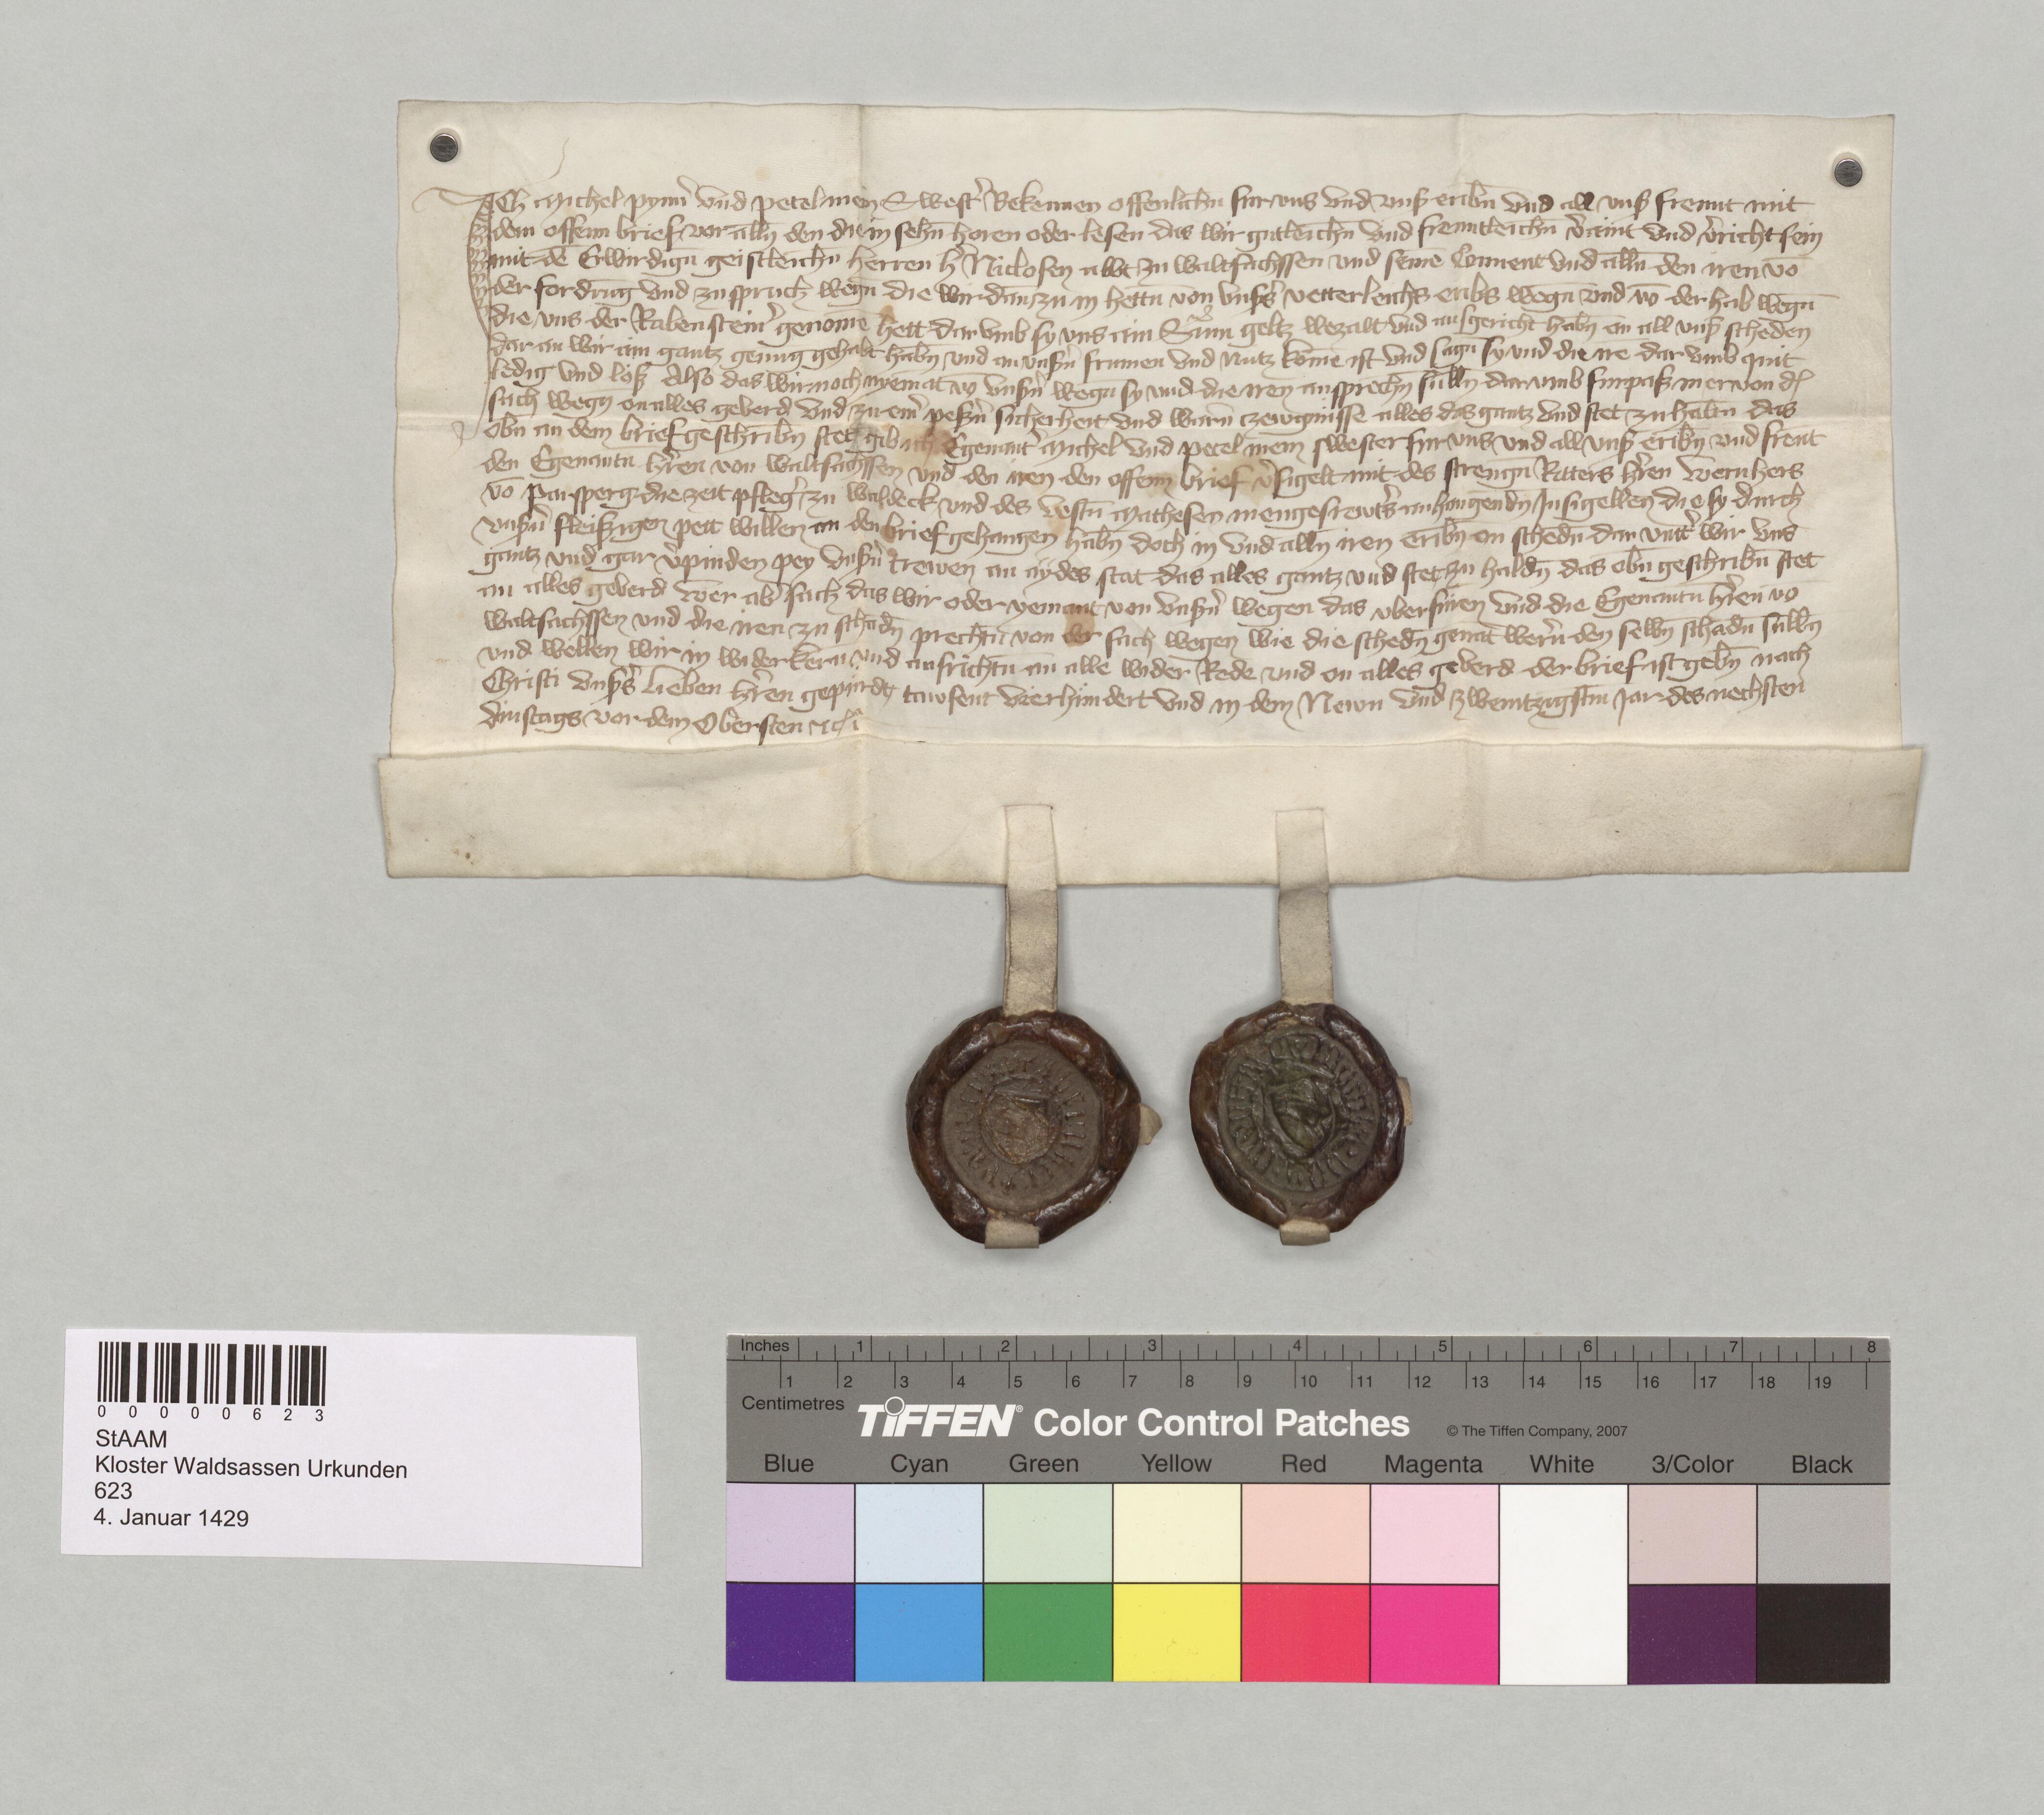 Ich Michel pymer vnd petel mein Swester Bekennen offenlichn fur vns vnd vnß eribn vnd all vnß frewnt mit
dem offenn brief vor alln den die in sehn horen oder lesen das wir gutleichn vnd frewntleichn veraint vnd vericht sein
mit dē Erwirdign geistleichn herren hern Niclosen abbt zu waltsachssen vnd seinē Conuent vnd alln den iren vō
der fordrung vnd zuspruch wegn die wir dan zu in hettn von vnßers vetterleichs eribs wegn vnd vō der hab wegn
die vns der Rabensteiner genomē hett dar vmb sy vns ain Sūm geltz bezalt vnd ausgericht habn on all vnß scheden
dar an wir ain gantz genug gehabt habn vnd an vnßern frumen vnd nutz komē ist vnd sagn sy vnd die ire dar vmb quit
ledig vnd löß Also das wir noch nyemat vō vnßern wegn sy vnd die iren ansprechn sulln dar vmb furpaß mer von der
sach wegn on alles geuerd vnd zu einer peßern sicherheit vnd warn czewgnüsse alles das gantz vnd stet zu haltn das
obn an dem brief geschribn stet gib ich Egenanter Michel vnd petel mein swester fur vns vnd all vnß eribn vnd frewnt
den Egenantn herren von waltsachssen vnd den iren den offenn brief versigelt mit des strengn Ritters herren Wernhers
vō parsperg die zeit pfleger zu waldeck vnd des vestn Mathesen mengesrewters anhangendn Insigellen die sy durch
vnßern fleißigen pett willen an den brief gehangen habn doch in vnd alln iren eribn on schedn dar vnter wir vns
gantz vnd gar verpinden pey vnßern trewen an aydes stat das alles gantz vnd stet zu haldn das obn geschribn stet
an alles geuerd Wer aber sach das wir oder yemant von vnßern wegen das vberfüren vnd die Egenantn herren vō
waltsachssen vnd die iren zu schadn prechtn von der sach wegen wie die schedn genāt wern den selbn schadn sulln
vnd wellen wir in widerkern vnd ausrichtn an alle wider Rede vnd on alles geuerd der brief ist gebn nach
Christi vnßers lieben herren gepurde tawsent vierhundert vnd in dem Newn vnd zwentzigstn Jar des nechsten
dinstags vor dem Obersten
0 0 0 0 0 6 2 3
StAAM
Kloster Waldsassen Urkunden
623
4. Januar 1429
Inches 1 2 3 4 5 6 7 8
1 2 3 4 5 6 7 8 9 10 11 12 13 14 15 16 17 18 19
Centimetres
TIFFEN® Color Control Patches © The Tiffen Company, 2007
Blue Cyan Green Yellow Red Magenta White 3/Color Black